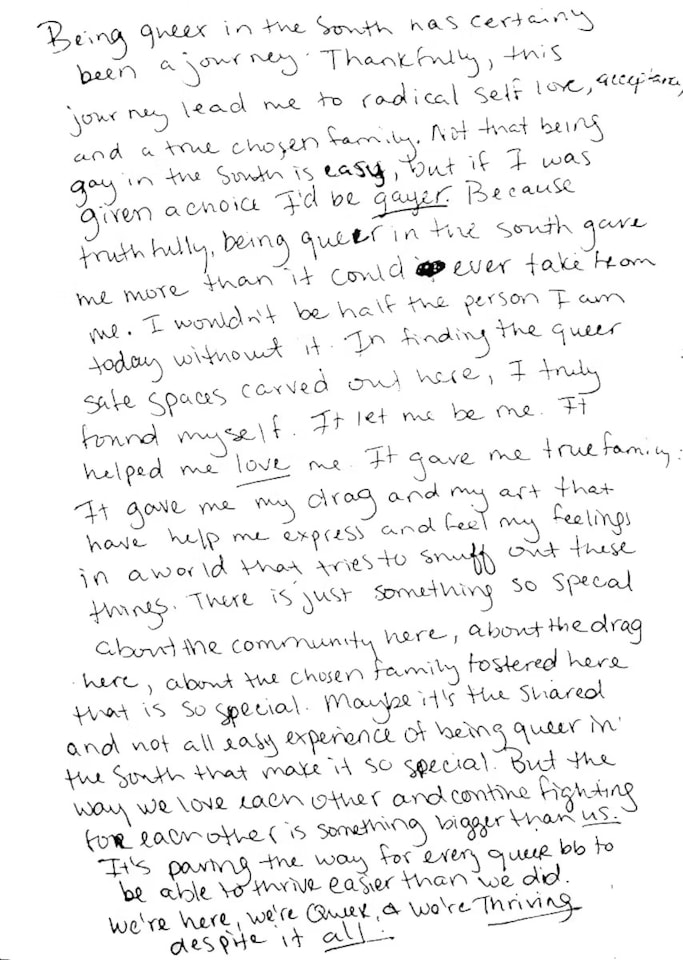 Being queer in the South has certainy
been a journey. Thankfully, this
journey lead me to radical self love, acceptance,
and a true chosen family. Not that being
gay in the South is easy, but if I was
given a choice I'd be gayer. Because
truthfully, being queer in the south gave
me more than it could ever take from
me. I wouldn't be half the person I am
today without it. In finding the queer
safe spaces carved out here, I truly
found myself. It let me be me. It
helped me love me. It gave me true family.
It gave me my drag and my art that
have help me express and feel my feelings
in a world that tries to snuff out these
things. There is just something so special
about the community here, about the drag
here, about the chosen family fostered here
that is so special. Maybe it's the shared
and not all easy experience of being queer in
the South that make it so special. But the
way we love each other and contine fighting
for each other is something bigger than us.
It's paving the way for every queer bb to
be able to thrive easier than we did.
we're here, we're Queer, & we're Thriving
despite it all.